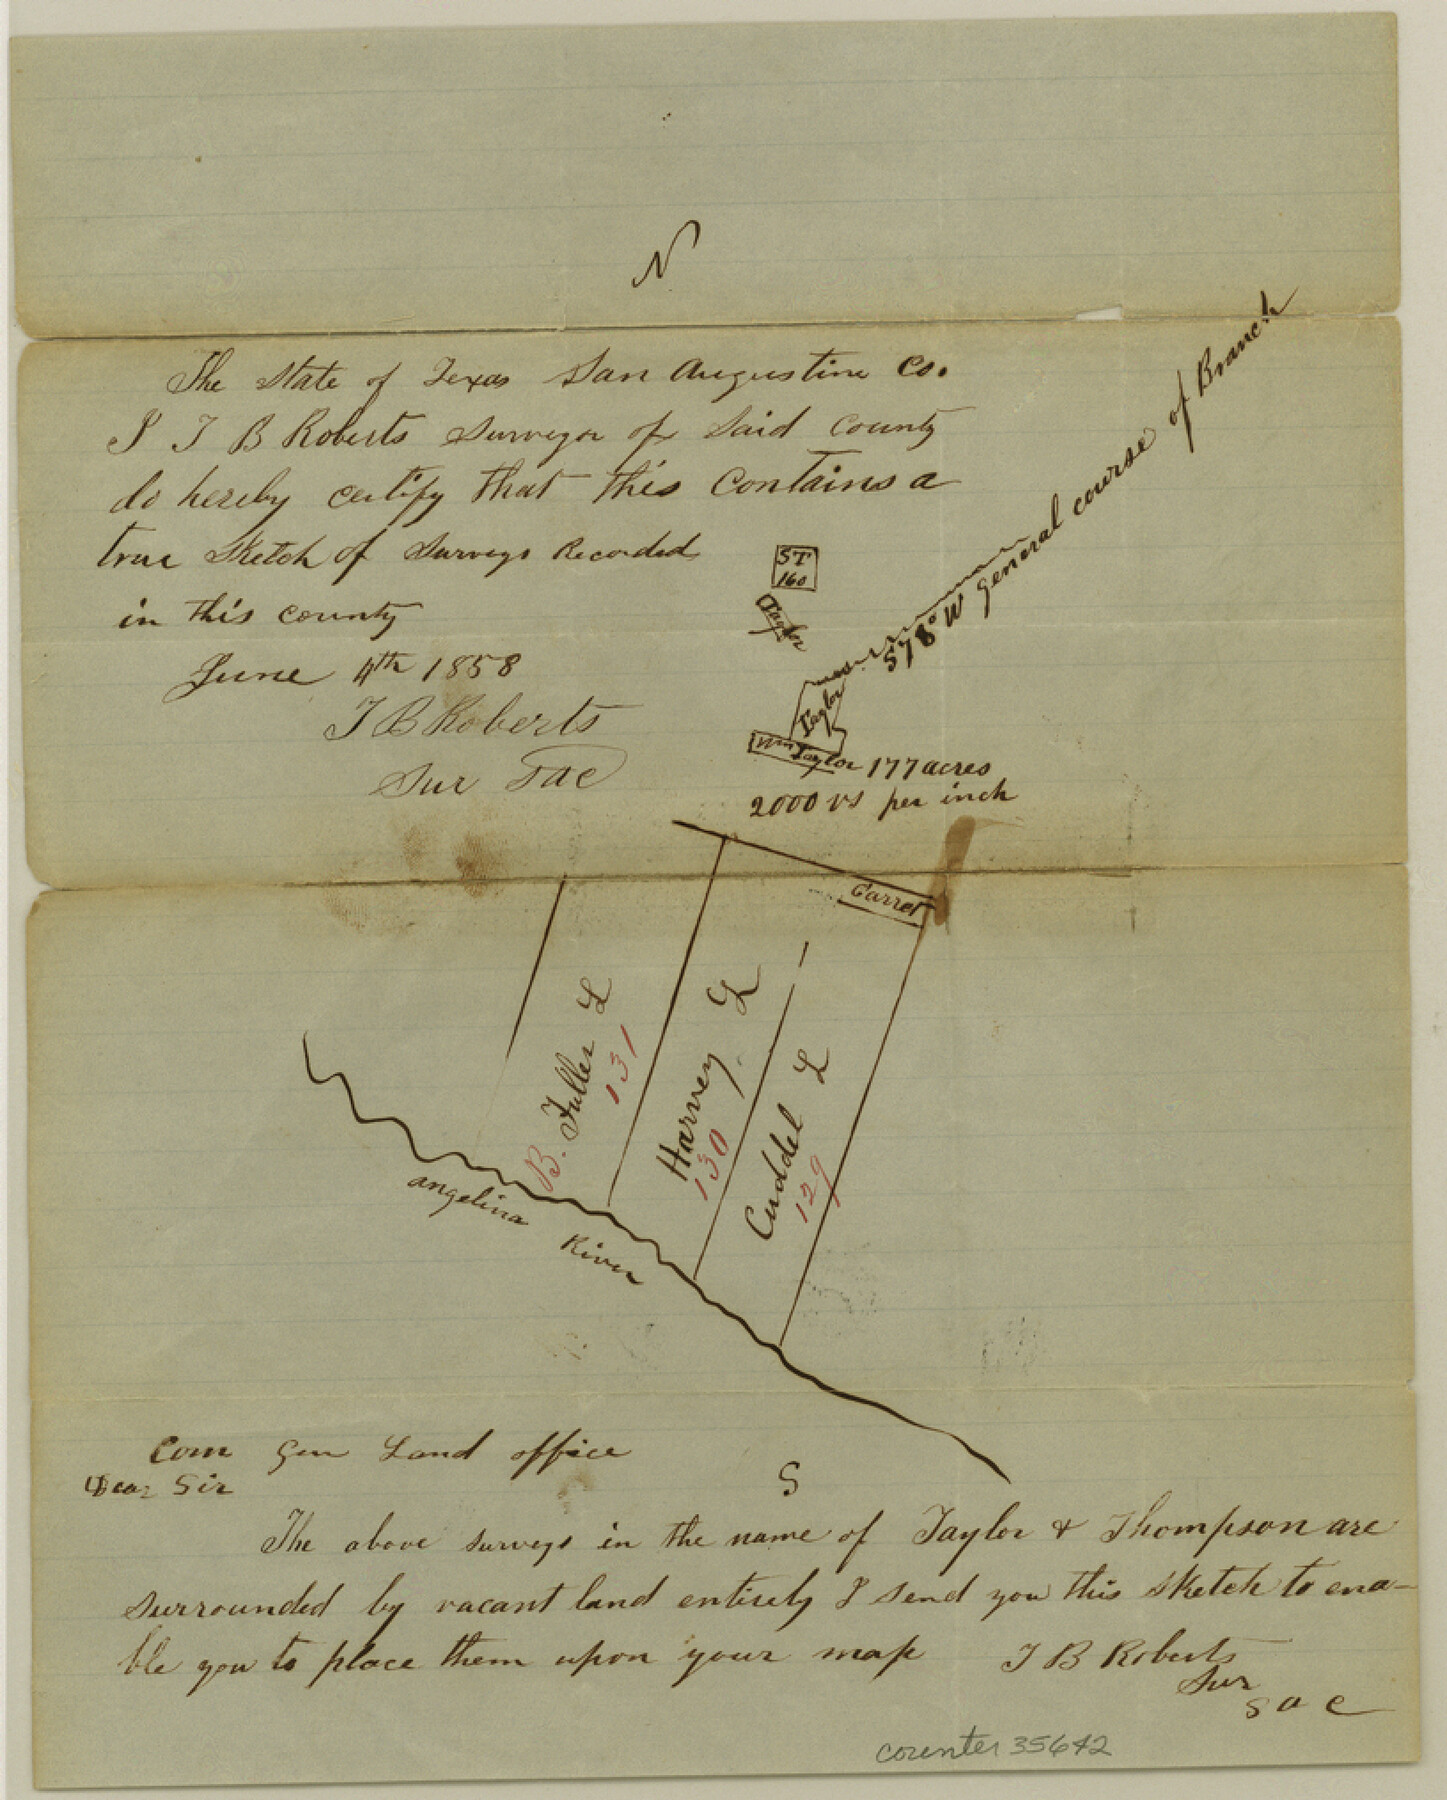 N
The State of Texas San Augustine Co.
I T B Roberts Surveyor of Said County
do hereby certify that this Contains a
true Sketch of Surveys Recorded
in this county
June 4th 1858
T B Roberts
Sur SAC
ST
160
Taylor
S78°W general course of Branch
Taylor
Wm Taylor 177 acres
2000 vs per inch
Garret
B. Fuller L
131
Harvey L
130
Cuddel L
129
Angelina River
Com Gen Land office
Dear Sir
S
The above surveys in the name of Taylor & Thompson are
surrounded by vacant land entirely I send you this sketch to ena-
ble you to place them upon your map T B Roberts
Sur
S A C
counter 35642